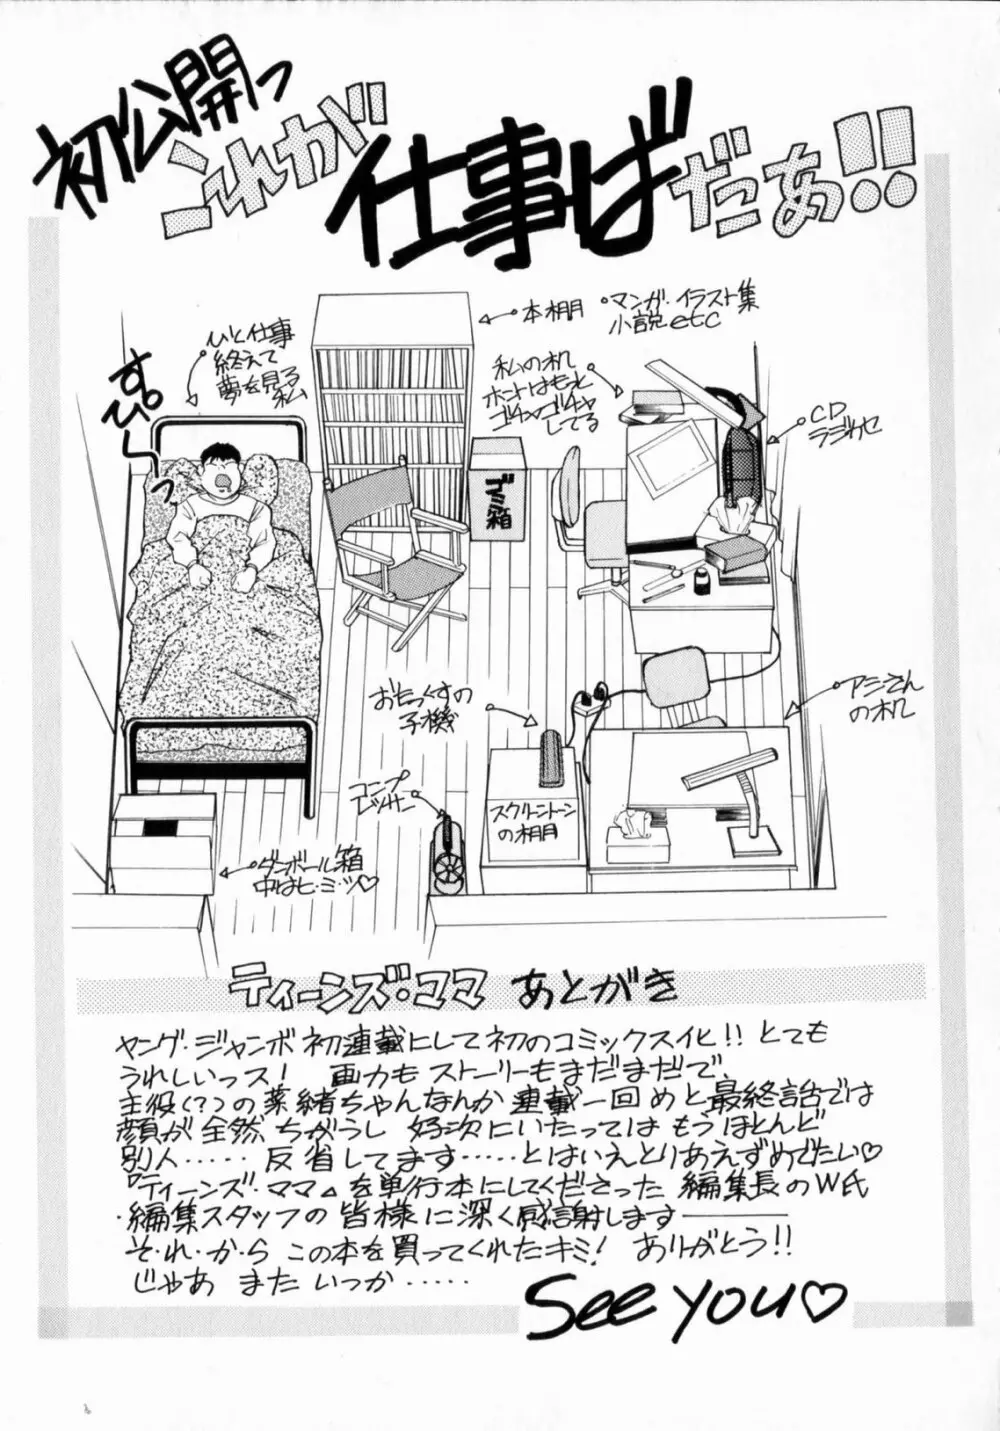 初公開っ
これが
仕事ば
だぁ!!
ひと仕事
終えて
夢を見る
私
すぴ〜っ
本棚
・マンガ・イラスト集
小説etc
私の机
ホントはもっと
ゴチャゴチャ
してる
CD
ラジカセ
ゴミ箱
おもっくすの
子機
アシさん
の机
コンプ
レッサー
スクリーントーン
の棚
ダンボール箱
中はヒ・ミ・ツ♡
ティーンズ・ママ あとがき
ヤング・ジャンボ初連載にして初のコミックスイヒ!! とても
うれしいっス! 画力もストーリーもまだまだで、
主役(?)の薬緒ちゃんなんか連載一回めと最終話では
顔が全然ちがうし 好次にいたってはもうほとんど
別人…… 反省してます……とはいえとりあえずめでたい♡
『ティーンズ・ママ』を単行本にしてくださった 編集長のW氏
・編集スタッフの皆様に深く感謝します――
そ・れ・か・ら この本を買ってくれたキミ! ありがとう!!
じゃあ またいつか……
See you♡